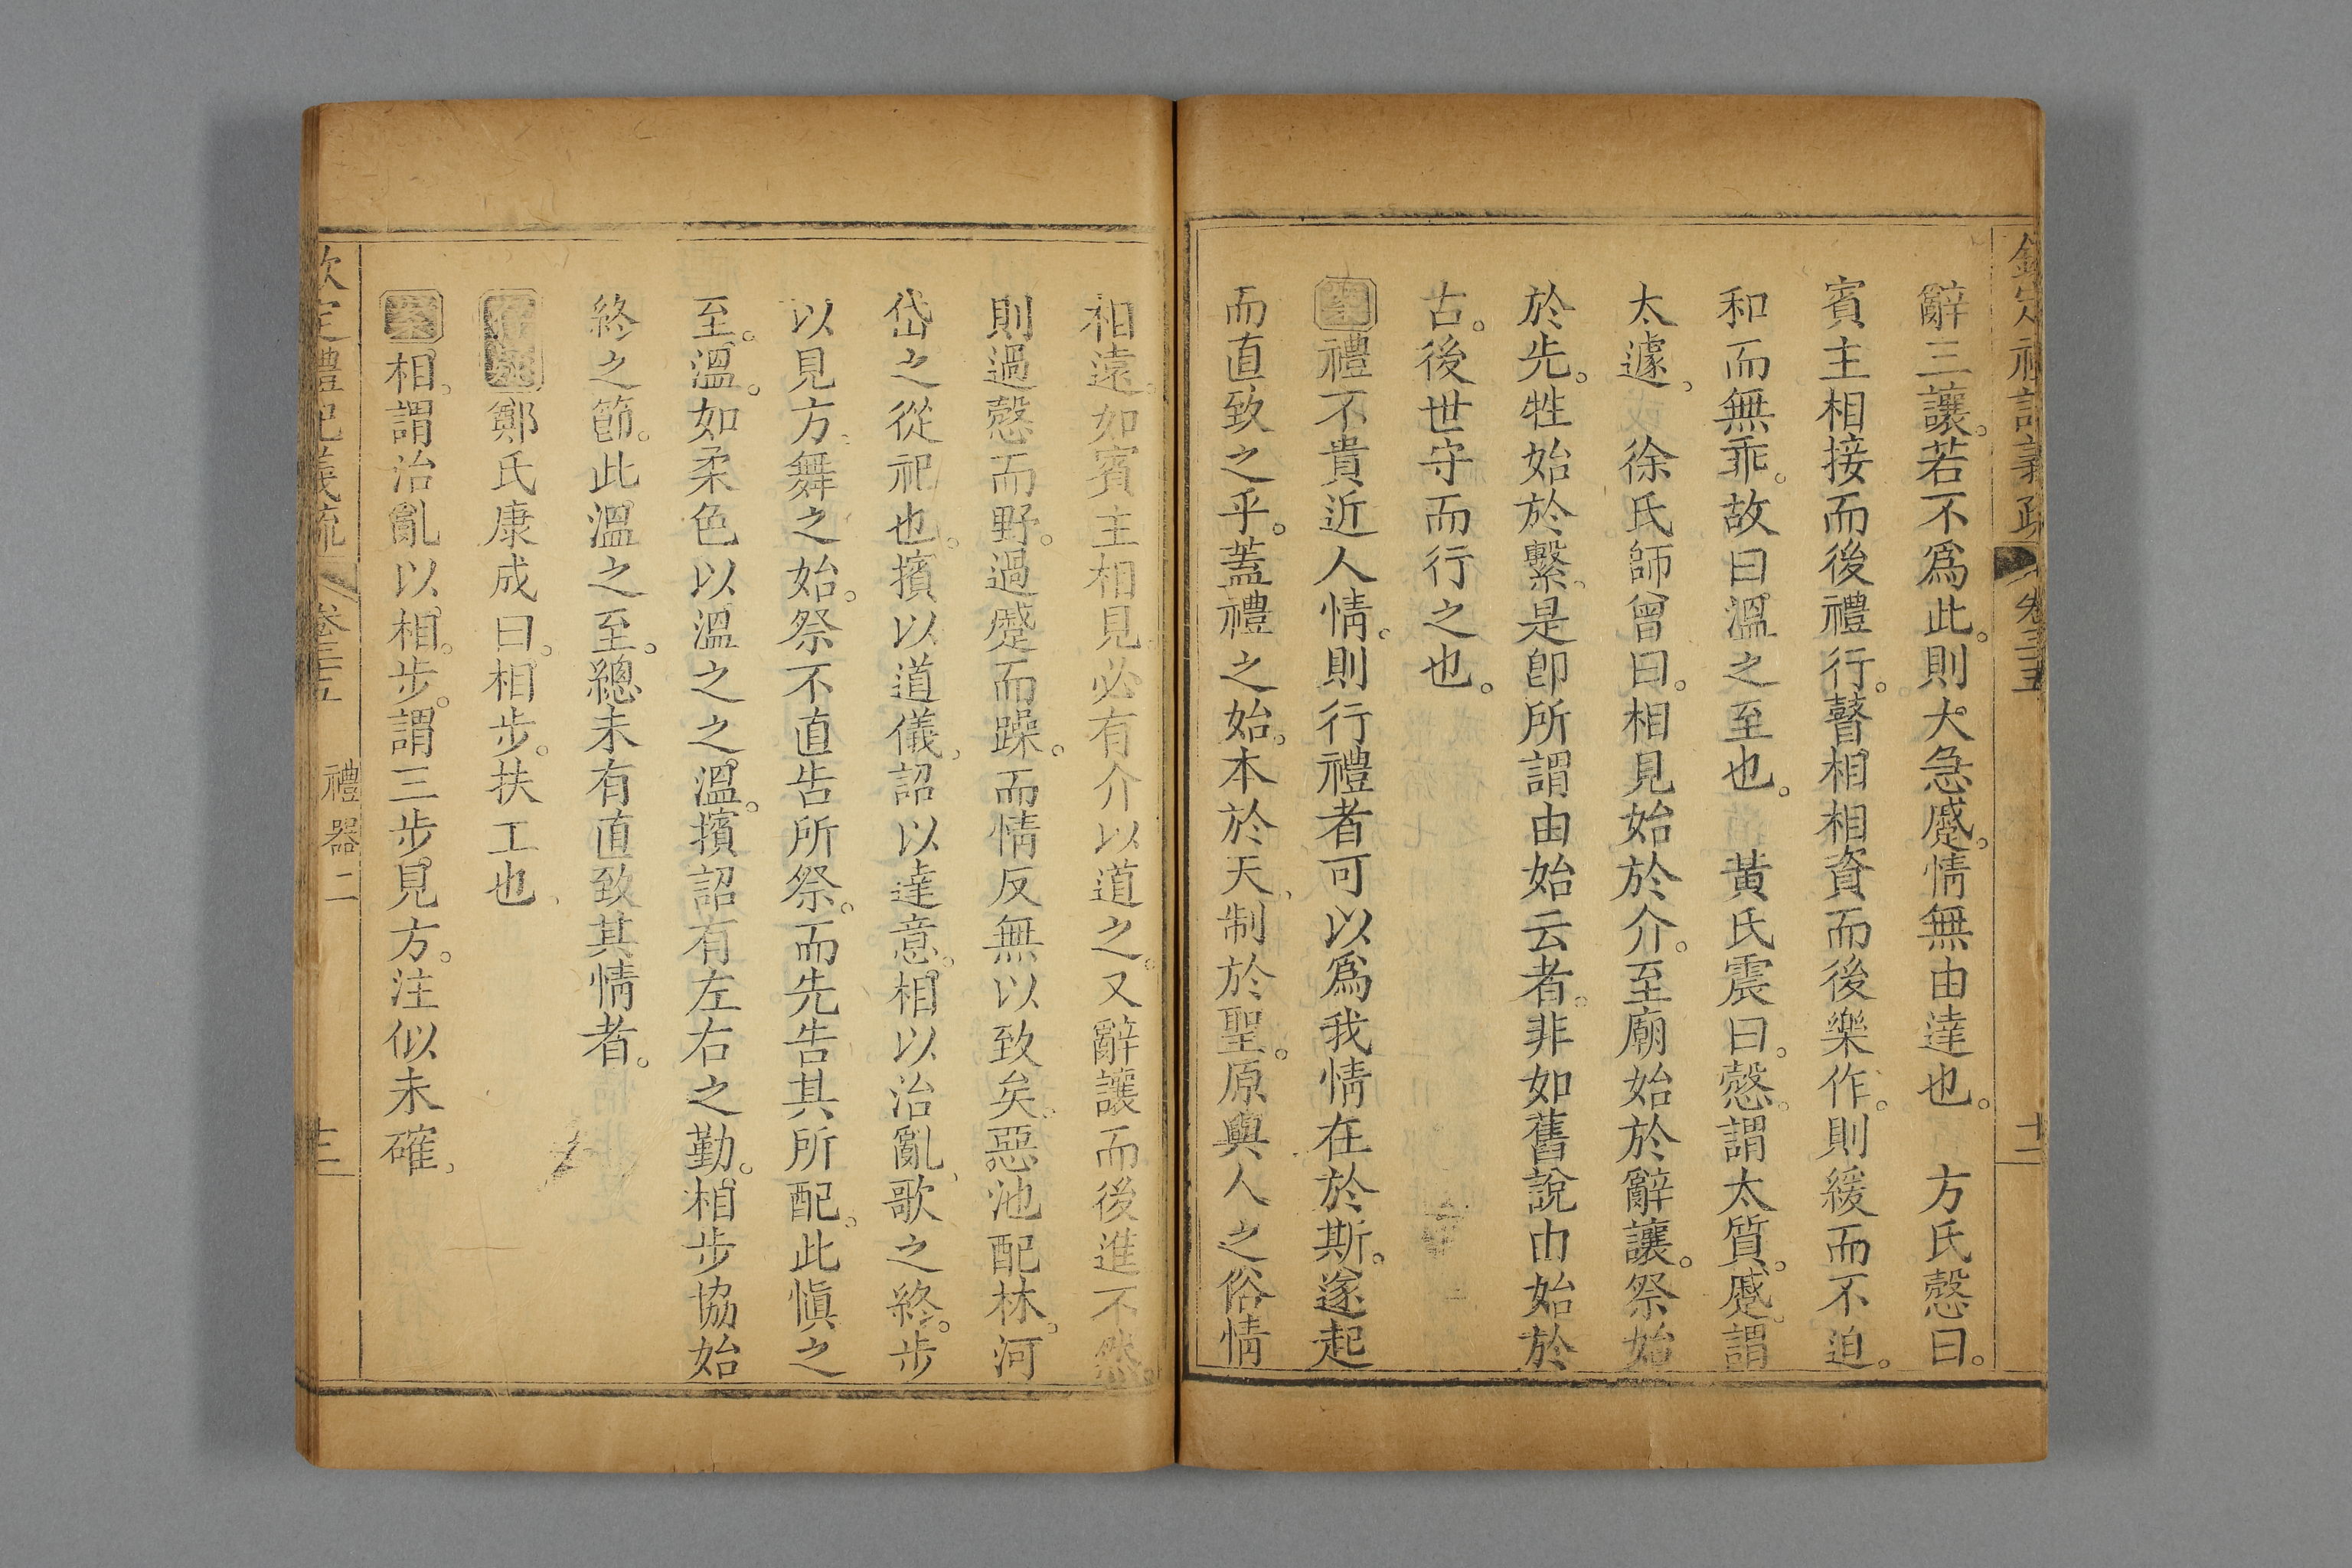 欽定禮記義疏 卷三十五 十二
辭三讓。若不爲此。則大急蹙。情無由達也。 方氏慤曰。
賓主相接而後禮行。瞽相相資而後樂作。則緩而不迫。
和而無乖。故曰溫之至也。 黃氏震曰。慤。謂太質。蹙。謂
太遽。 徐氏師曾曰。相見始於介。至廟始於辭讓。祭始
於先。牲始於繫。是卽所謂由始云者。非如舊說由始於
古。後世守而行之也。
案禮不貴近人情。則行禮者可以爲我情在於斯。遂起
而直致之乎。蓋禮之始。本於天。制於聖。原與人之俗情
相遠。如賓主相見。必有介以道之。又辭讓而後進。不然。
則過慤而野。過蹙而躁。而情反無以致矣。惡池配林。河
岱之從祀也。擯以道儀。詔以達意。相以治亂。歌之終。步
以見方。舞之始。祭不直告所祭。而先告其所配。此愼之
至。溫。如柔色以溫之之溫。擯詔有左右之勤。相步協始
終之節。此溫之至。總未有直致其情者。
鄭氏康成曰。相步。扶工也。
案相。謂治亂以相。步。謂三步見方。注似未確。
欽定禮記義疏 卷三十五 禮器二 十三